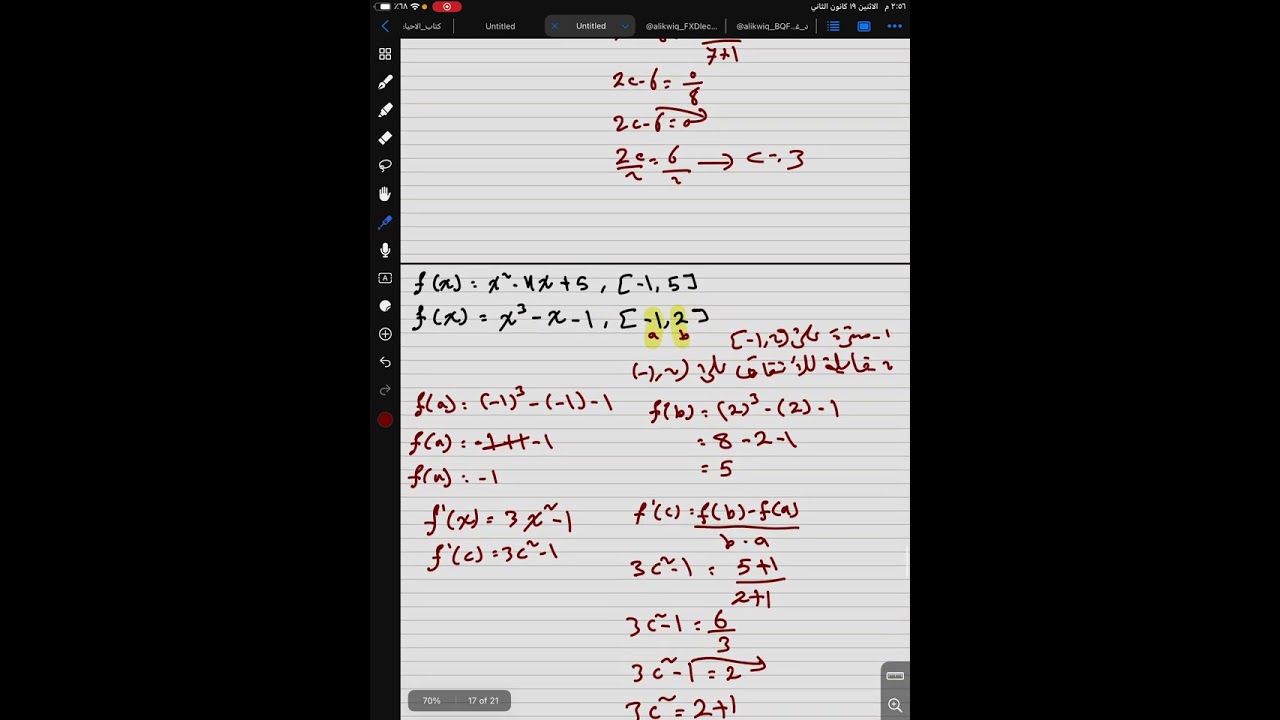 ٢:٥٦ م الاثنين ١٩ كانون الثاني
٦٨٪
كتاب_الاحياء
Untitled
Untitled
@alikwiq_FXDlec...
@alikwiq_BQF...
7+1
2c-6=0/8
2c-6=0
2c/2=6/2 → c=3
f(x)=x²-4x+5, [-1,5]
f(x)=x³-x-1, [-1,2]
a b
١- مستمرة على [-1,2]
٢ قابلة للاشتقاق على (-1,2)
f(a)=(-1)³-(-1)-1
f(a)=-1+1-1
f(a)=-1
f(b)=(2)³-(2)-1
=8-2-1
=5
f'(x)=3x²-1
f'(c)=3c²-1
f'(c)=f(b)-f(a)/b-a
3c²-1=5+1/2+1
3c²-1=6/3
3c²-1=2
3c²=2+1
70% 17 of 21